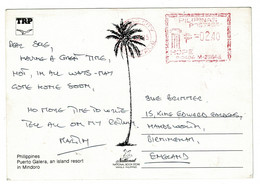 TRP
PHILIPPINES
0240
DEAR SUE,
HAVING A GREAT TIME,
HOT, IN ALL WAYS - MAY
COME HOME SOON,
NO MORE TIME TO WRITE
TELL ALL ON MY RETURN
SUE BRIMMER
15, KING EDWARD
HANDSWORTH,
BIRMINGHAM,
ENGLAND
National
Philippines
Puerto Galera, an island resort
in Mindoro